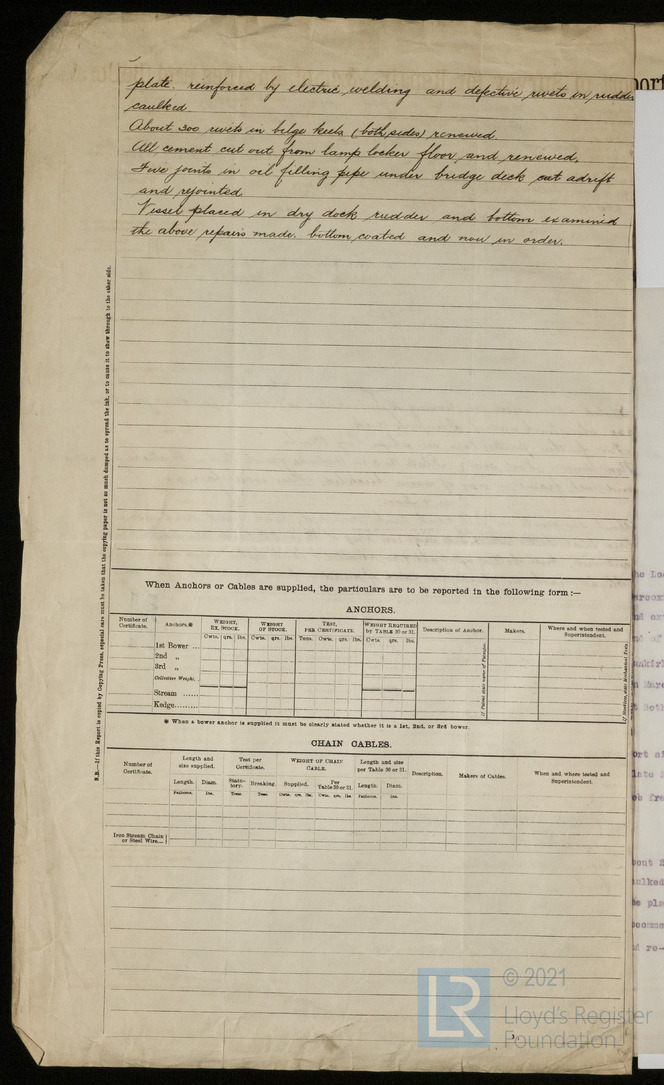 plate. reinforced by electric welding and defective rivets in rudder
caulked.
About 300 rivets in bilge keels (both sides) renewed.
All cement cut out from lamp locker floor and renewed.
Five joints in oil filling pipe under bridge deck cut adrift
and rejointed.
Vessel placed in dry dock rudder and bottom examined
the above repairs made. bottom coated and now in order.
N.B.—If this Report is copied by Copying Press, especial care must be taken that the copying paper is not so much damped as to spread the ink, or to cause it to show through to the other side.
When Anchors or Cables are supplied, the particulars are to be reported in the following form :—
ANCHORS.
Number of Certificate.
Anchors.*
WEIGHT, EX. STOCK.
WEIGHT OF STOCK.
TEST, PER CERTIFICATE.
WEIGHT REQUIRED by TABLE 30 or 31.
Description of Anchor.
Makers.
Where and when tested and Superintendent.
Cwts. qrs. lbs. Cwts. qrs. lbs. Tons. Cwts. qrs. lbs. Cwts. qrs. lbs.
1st Bower ...
2nd „
3rd „
Collective Weight.
Stream ......
Kedge.........
If Patent state name of Patentee.
* When a bower anchor is supplied it must be clearly stated whether it is a 1st, 2nd, or 3rd bower.
CHAIN CABLES.
Number of Certificate.
Length and size supplied.
Test per Certificate.
WEIGHT OF CHAIN CABLE.
Length and size per Table 30 or 31.
Description.
Makers of Cables.
When and where tested and Superintendent.
Length. Diam. Statutory. Breaking. Supplied. Per Table 30 or 31. Length. Diam.
Fathoms. Ins. Tons. Tons. Cwts. qrs. lbs. Cwts. qrs. lbs. Fathoms. Ins.
Iron Stream Chain or Steel Wire...
LR
© 2021
Lloyd's Register
Foundation